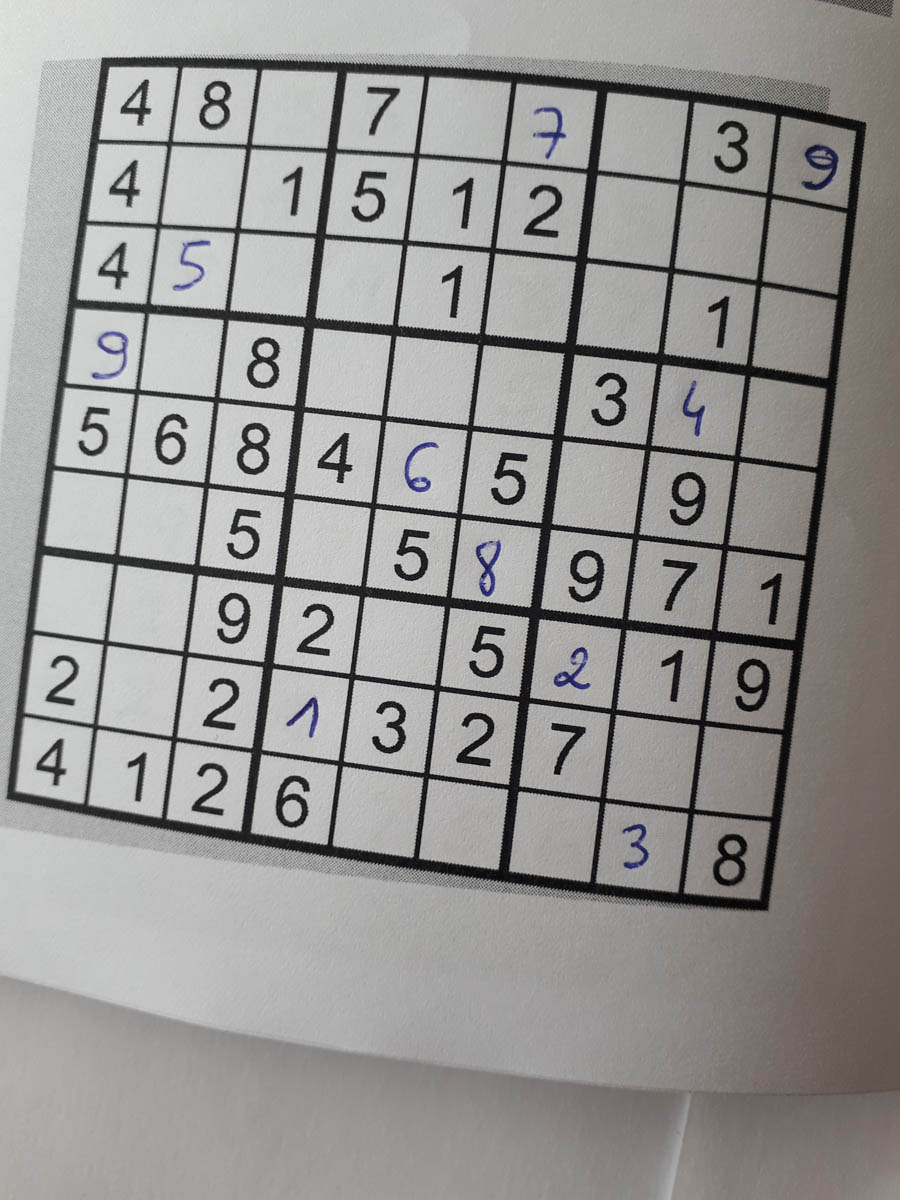 4 8 7 7 3 9
4 1 5 1 2
4 5 1 1
9 8 3 4
5 6 8 4 6 5 9
5 5 8 9 7 1
9 2 5 2 1 9
2 2 1 3 2 7
4 1 2 6 3 8